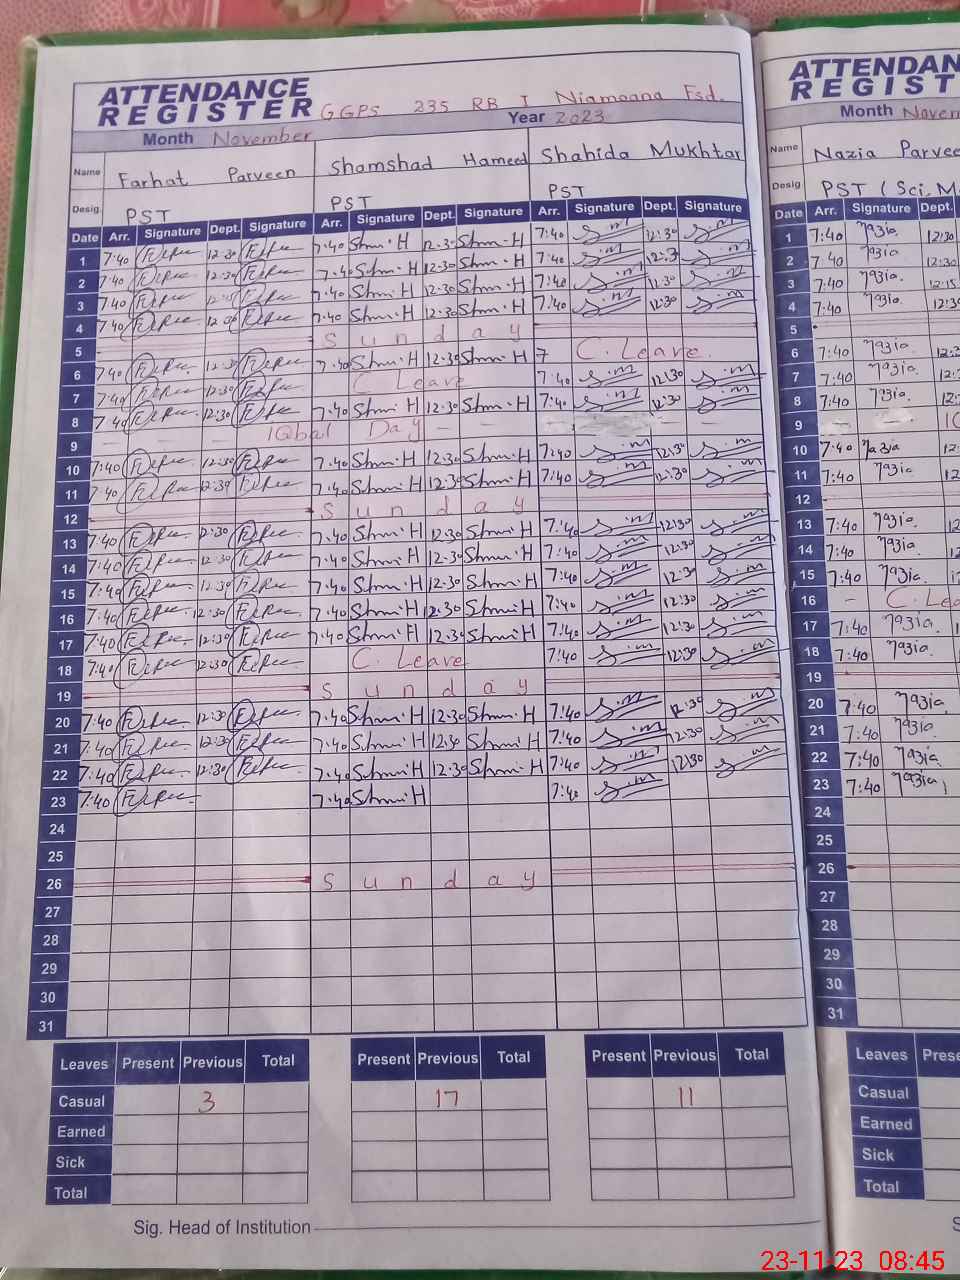 ATTENDANCE
REGISTER GGPS 235 RB I Niamoana Fsd.
Month November Year 2023
Name Farhat Parveen Shamshad Hameed Shahida Mukhtar
Desig. PST PST PST
Date Arr. Signature Dept. Signature Arr. Signature Dept. Signature Arr. Signature Dept. Signature
1 7:40 12:30 7:40 Shm·H 12:30 Shm·H 7:40 S.m 12:30 S.m
2 7:40 12:30 7:40 Shm·H 12:30 Shm·H 7:40 S.m S.m
3 7:40 7:40 Shm·H 12:30 Shm·H 7:40 S.m 12:30 S.m
4 7:40 7:40 Shm·H 12:30 Shm·H 7:40 S.m 12:30 S.m
5 Sunday
6 7:40 12:30 7:40 Shm·H 12:30 Shm·H 7 C. Leave.
7 7:40 12:30 C Leave 7:40 S.m 12:30 S.m
8 7:40 12:30 7:40 Shm·H 12:30 Shm·H 7:40 S.m 12:30 S.m
9 IQbal Day
10 7:40 12:30 7:40 Shm·H 12:30 Shm·H 7:40 S.m 12:30 S.m
11 7:40 12:30 7:40 Shm·H 12:30 Shm·H 7:40 S.m 12:30 S.m
12 Sunday
13 7:40 12:30 7:40 Shm·H 12:30 Shm·H 7:40 S.m 12:30 S.m
14 7:40 12:30 7:40 Shm·H 12:30 Shm·H 7:40 S.m 12:30 S.m
15 7:40 12:30 7:40 Shm·H 12:30 Shm·H 7:40 S.m 12:30 S.m
16 7:40 12:30 7:40 Shm·H 12:30 Shm·H 7:40 S.m 12:30 S.m
17 7:40 12:30 7:40 Shm·H 12:30 Shm·H 7:40 S.m 12:30 S.m
18 7:40 12:30 C. Leave 7:40 S.m 12:30 S.m
19 Sunday
20 7:40 12:30 7:40 Shm·H 12:30 Shm·H 7:40 S.m 12:30 S.m
21 7:40 12:30 7:40 Shm·H 12:30 Shm·H 7:40 S.m 12:30 S.m
22 7:40 12:30 7:40 Shm·H 12:30 Shm·H 7:40 S.m 12:30 S.m
23 7:40 7:40 Shm·H 7:40 S.m
24
25
26 Sunday
27
28
29
30
31
Leaves Present Previous Total Present Previous Total Present Previous Total
Casual 3 17 11
Earned
Sick
Total
Sig. Head of Institution
ATTENDAN
REGIST
Month Novem
Name Nazia Parvee
Desig PST (Sci. M
Date Arr. Signature Dept.
1 7:40 793ia. 12:30
2 7:40 793ia. 12:30
3 7:40 793ia. 12:15
4 7:40 793ia.
5
6 7:40 793ia.
7 7:40 793ia.
8 7:40 793ia.
9
10 7:40
11 7:40 793ia
12
13 7:40 793ia.
14 7:40 793ia.
15 7:40 793ia.
16 C. Lea
17 7:40 793ia.
18 7:40 793ia.
19
20 7:40 793ia.
21 7:40 793ia.
22 7:40 793ia.
23 7:40 793ia.
24
25
26
27
28
29
30
31
Leaves Prese
Casual
Earned
Sick
Total
S
23-11-23 08:45